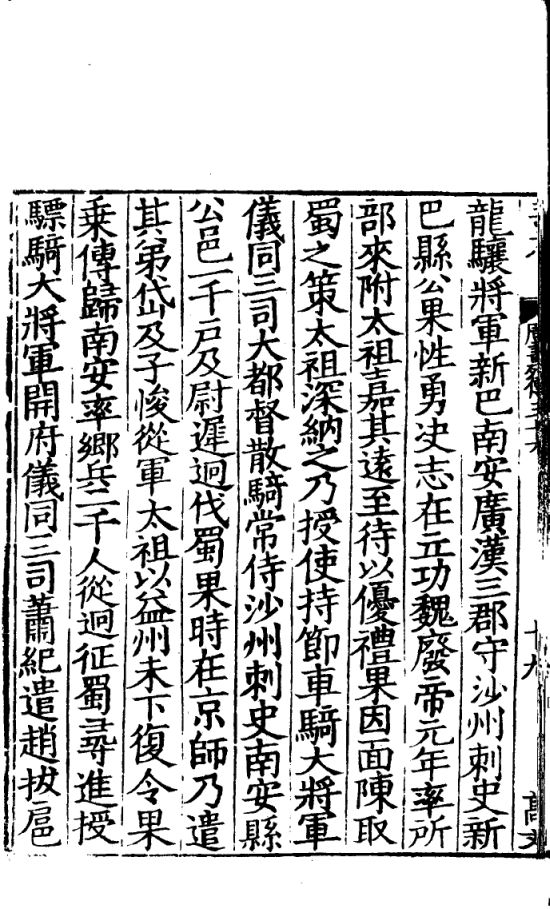 龍驤將軍新巴南安廣漢三郡守沙州刺史新
巴縣公果性勇决志在立功魏廢帝元年率所
部來附太祖嘉其遠至待以優禮果因面陳取
蜀之策太祖深納之乃授使持節車騎大將軍
儀同三司大都督散騎常侍沙州刺史南安縣
公邑一千戸及尉遲迥伐蜀果時在京師乃遣
其弟岱及子悛從軍太祖以益州未下復令果
乗傳歸南安率鄉兵二千人從迥征蜀尋進授
驃騎大將軍開府儀同三司蕭紀遣趙拔扈